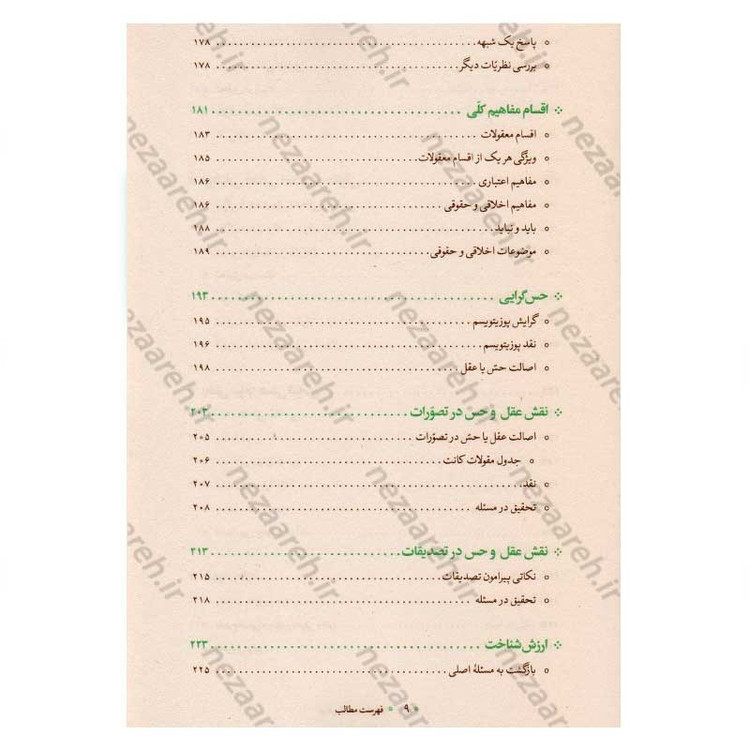 پاسخ یک شبهه ........ ۱۷۸
بررسی نظریّات دیگر ........ ۱۷۸
اقسام مفاهیم کلّی ........ ۱۸۱
اقسام معقولات ........ ۱۸۳
ویژگی هر یک از اقسام معقولات ........ ۱۸۵
مفاهیم اعتباری ........ ۱۸۶
مفاهیم اخلاقی و حقوقی ........ ۱۸۶
باید و نباید ........ ۱۸۸
موضوعات اخلاقی و حقوقی ........ ۱۸۹
حس‌گرایی ........ ۱۹۳
گرایش پوزیتویسم ........ ۱۹۵
نقد پوزیتویسم ........ ۱۹۶
اصالت حسّ یا عقل ........ ۱۹۸
نقش عقل و حس در تصوّرات ........ ۲۰۳
اصالت عقل یا حسّ در تصوّرات ........ ۲۰۵
جدول مقولات کانت ........ ۲۰۶
نقد ........ ۲۰۷
تحقیق در مسئله ........ ۲۰۸
نقش عقل و حس در تصدیقات ........ ۲۱۳
نکاتی پیرامون تصدیقات ........ ۲۱۵
تحقیق در مسئله ........ ۲۱۸
ارزش شناخت ........ ۲۲۳
بازگشت به مسئلهٔ اصلی ........ ۲۲۵
فهرست مطالب ۹
nezaareh.ir